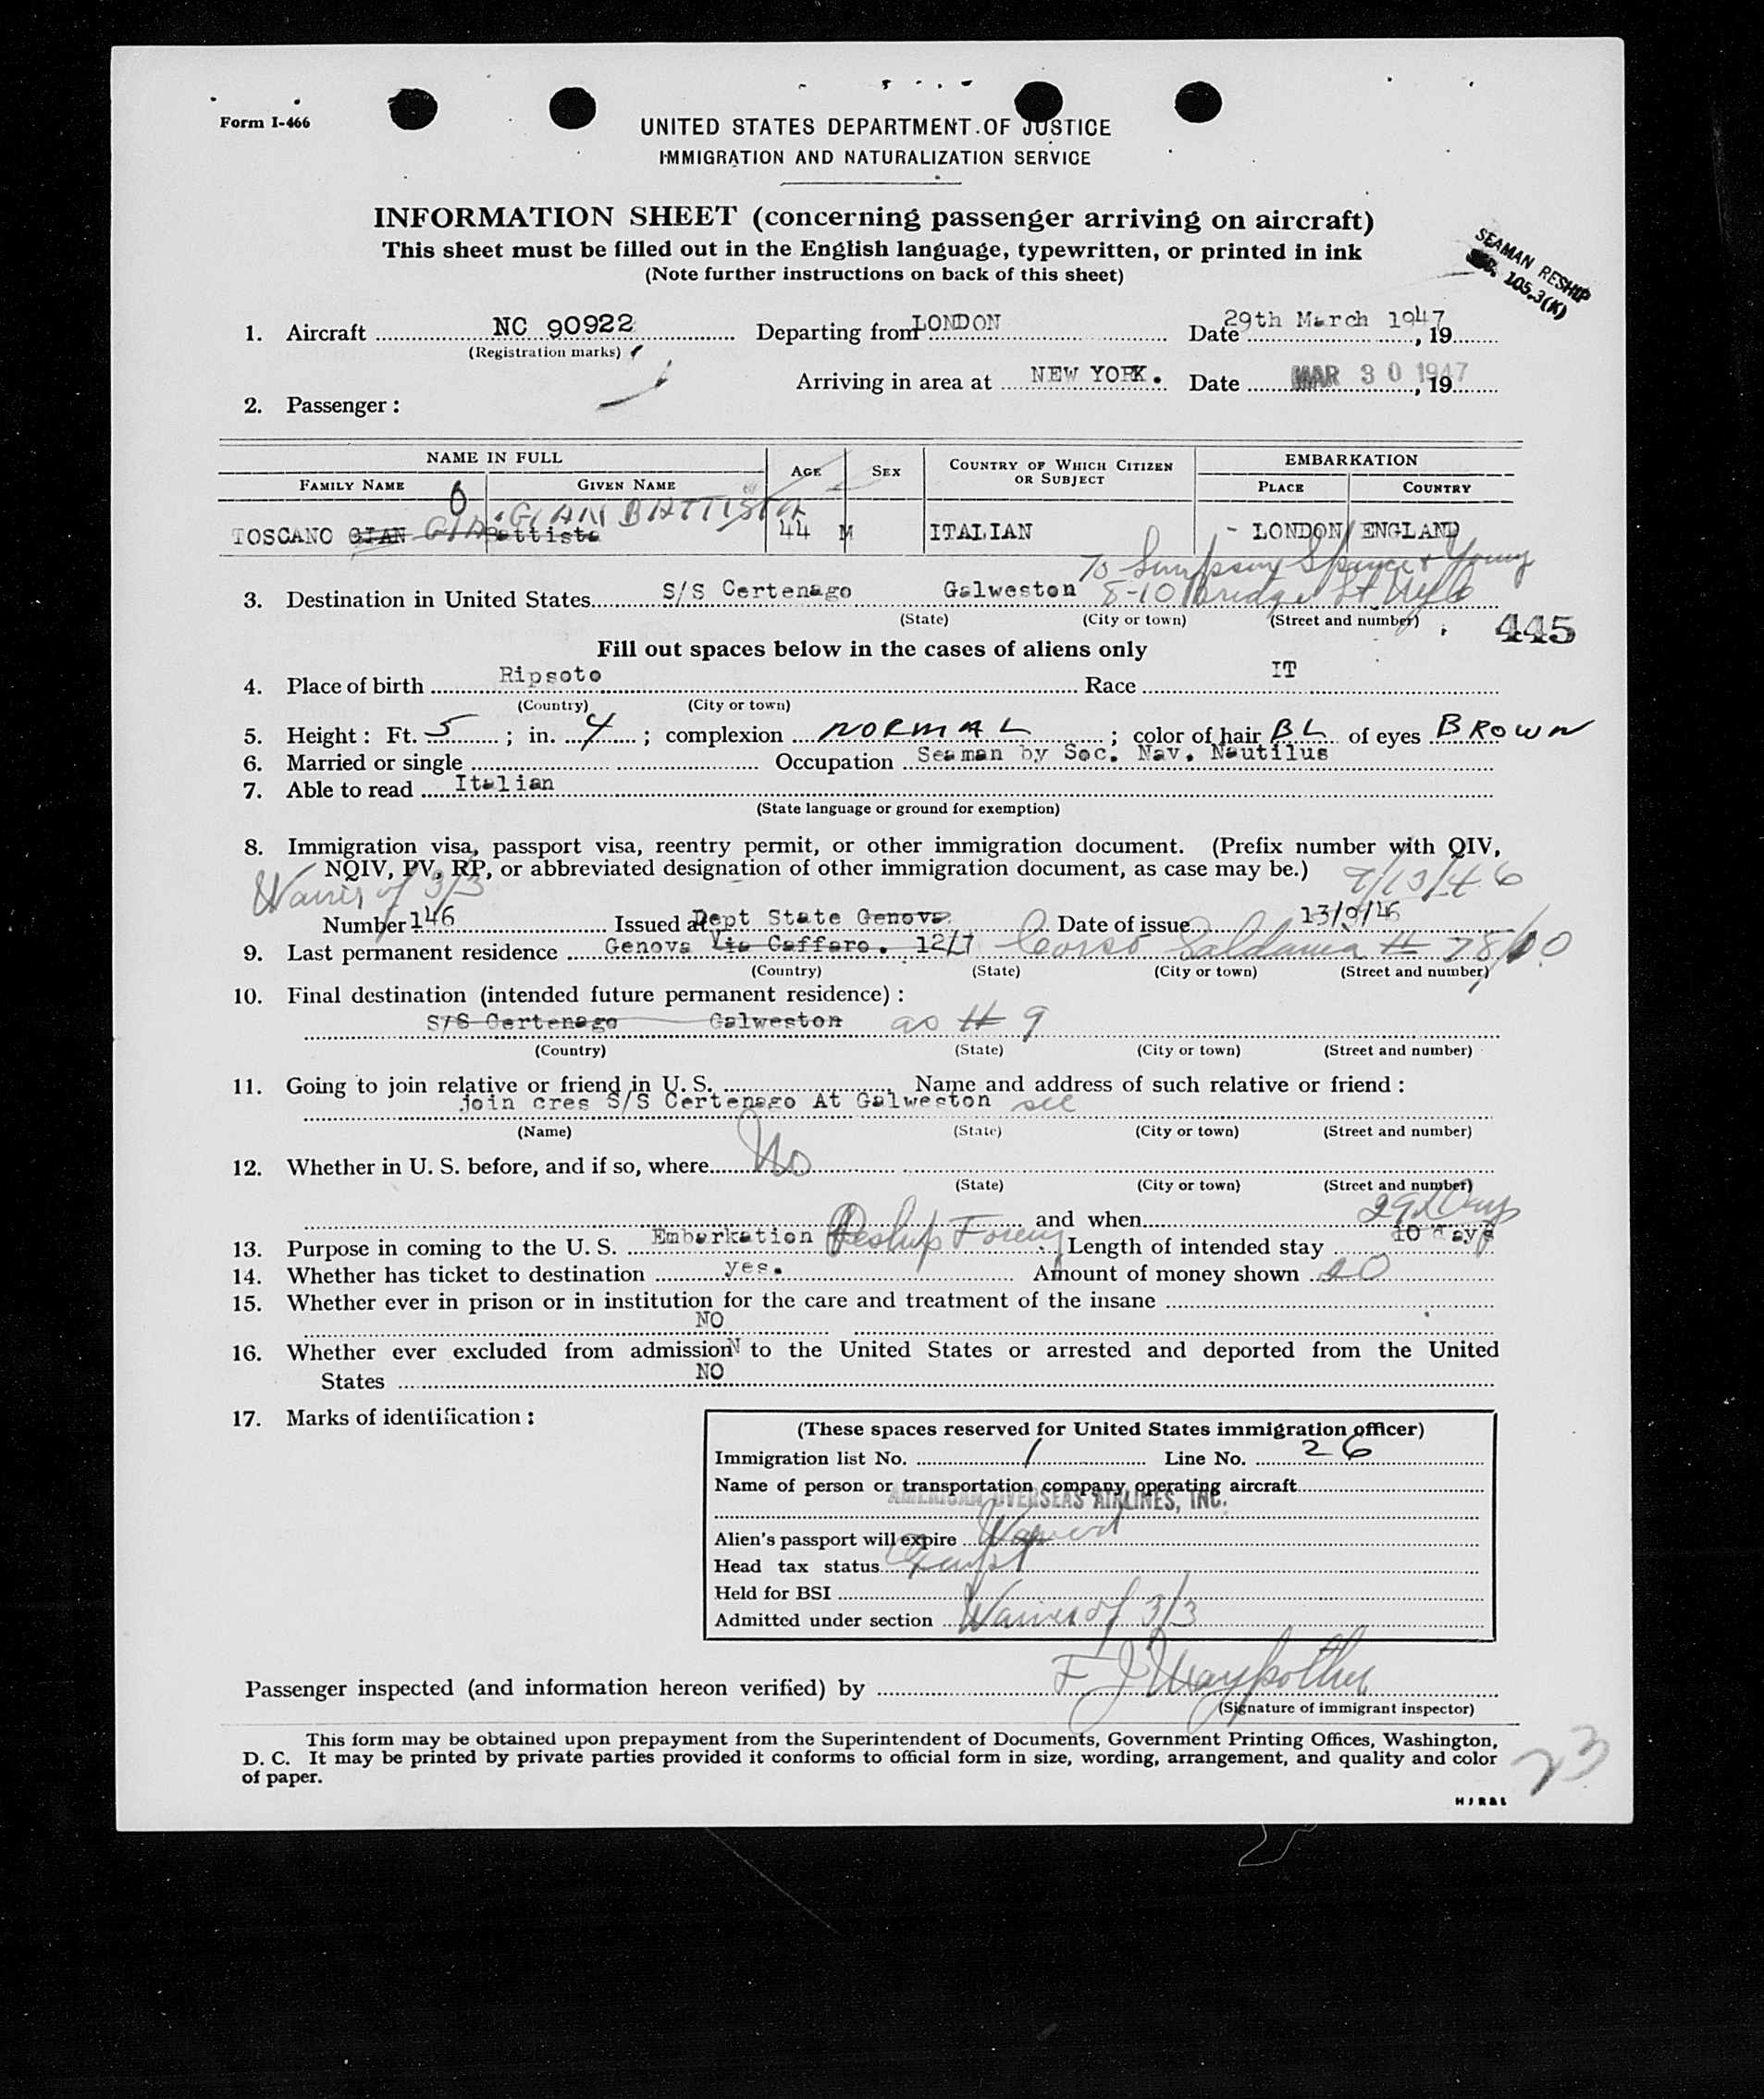 Form I-466
UNITED STATES DEPARTMENT OF JUSTICE
IMMIGRATION AND NATURALIZATION SERVICE
INFORMATION SHEET (concerning passenger arriving on aircraft)
This sheet must be filled out in the English language, typewritten, or printed in ink
(Note further instructions on back of this sheet)
SEAMAN RESHIP
105.3(K)
1. Aircraft NC 90922 Departing from LONDON Date 29th March 1947, 19
(Registration marks)
Arriving in area at NEW YORK. Date MAR 30 1947, 19
2. Passenger:
NAME IN FULL EMBARKATION
FAMILY NAME GIVEN NAME AGE SEX COUNTRY OF WHICH CITIZEN OR SUBJECT PLACE COUNTRY
GIAN BATTISTA
TOSCANO GIAN Battista 44 M ITALIAN - LONDON ENGLAND
To Simpson Spence & Young
3. Destination in United States S/S Certenago Galweston 8-10 Bridge St NYC
(State) (City or town) (Street and number)
445
Fill out spaces below in the cases of aliens only
4. Place of birth Ripsoto Race IT
(Country) (City or town)
5. Height: Ft. 5; in. 4; complexion NORMAL; color of hair BL of eyes BROWN
6. Married or single Occupation Seaman by Soc. Nav. Nautilus
7. Able to read Italian
(State language or ground for exemption)
8. Immigration visa, passport visa, reentry permit, or other immigration document. (Prefix number with QIV,
NQIV, PV, RP, or abbreviated designation of other immigration document, as case may be.) 9/13/46
Waiver of 3/3
Number 146 Issued at Dept State Genova Date of issue 13/9/46
9. Last permanent residence Genova Via Caffaro. 12/7 Corso
(Country) (State) (City or town) (Street and number)
10. Final destination (intended future permanent residence):
S/S Certenago Galweston as # 9
(Country) (State) (City or town) (Street and number)
11. Going to join relative or friend in U. S. Name and address of such relative or friend:
join cres S/S Certenago At Galweston see
(Name) (State) (City or town) (Street and number)
12. Whether in U. S. before, and if so, where No
(State) (City or town) (Street and number)
and when
29 Days
13. Purpose in coming to the U. S. Embarkation Reship Foreign Length of intended stay 10 days
14. Whether has ticket to destination yes. Amount of money shown 20
15. Whether ever in prison or in institution for the care and treatment of the insane
NO
16. Whether ever excluded from admission to the United States or arrested and deported from the United
States NO
17. Marks of identification:
(These spaces reserved for United States immigration officer)
Immigration list No. 1 Line No. 26
Name of person or transportation company operating aircraft
AMERICAN OVERSEAS AIRLINES, INC.
Alien's passport will expire Waived
Head tax status Exempt
Held for BSI
Admitted under section Waiver of 3/3
Passenger inspected (and information hereon verified) by
(Signature of immigrant inspector)
This form may be obtained upon prepayment from the Superintendent of Documents, Government Printing Offices, Washington,
D. C. It may be printed by private parties provided it conforms to official form in size, wording, arrangement, and quality and color
of paper.
23
HJR&L